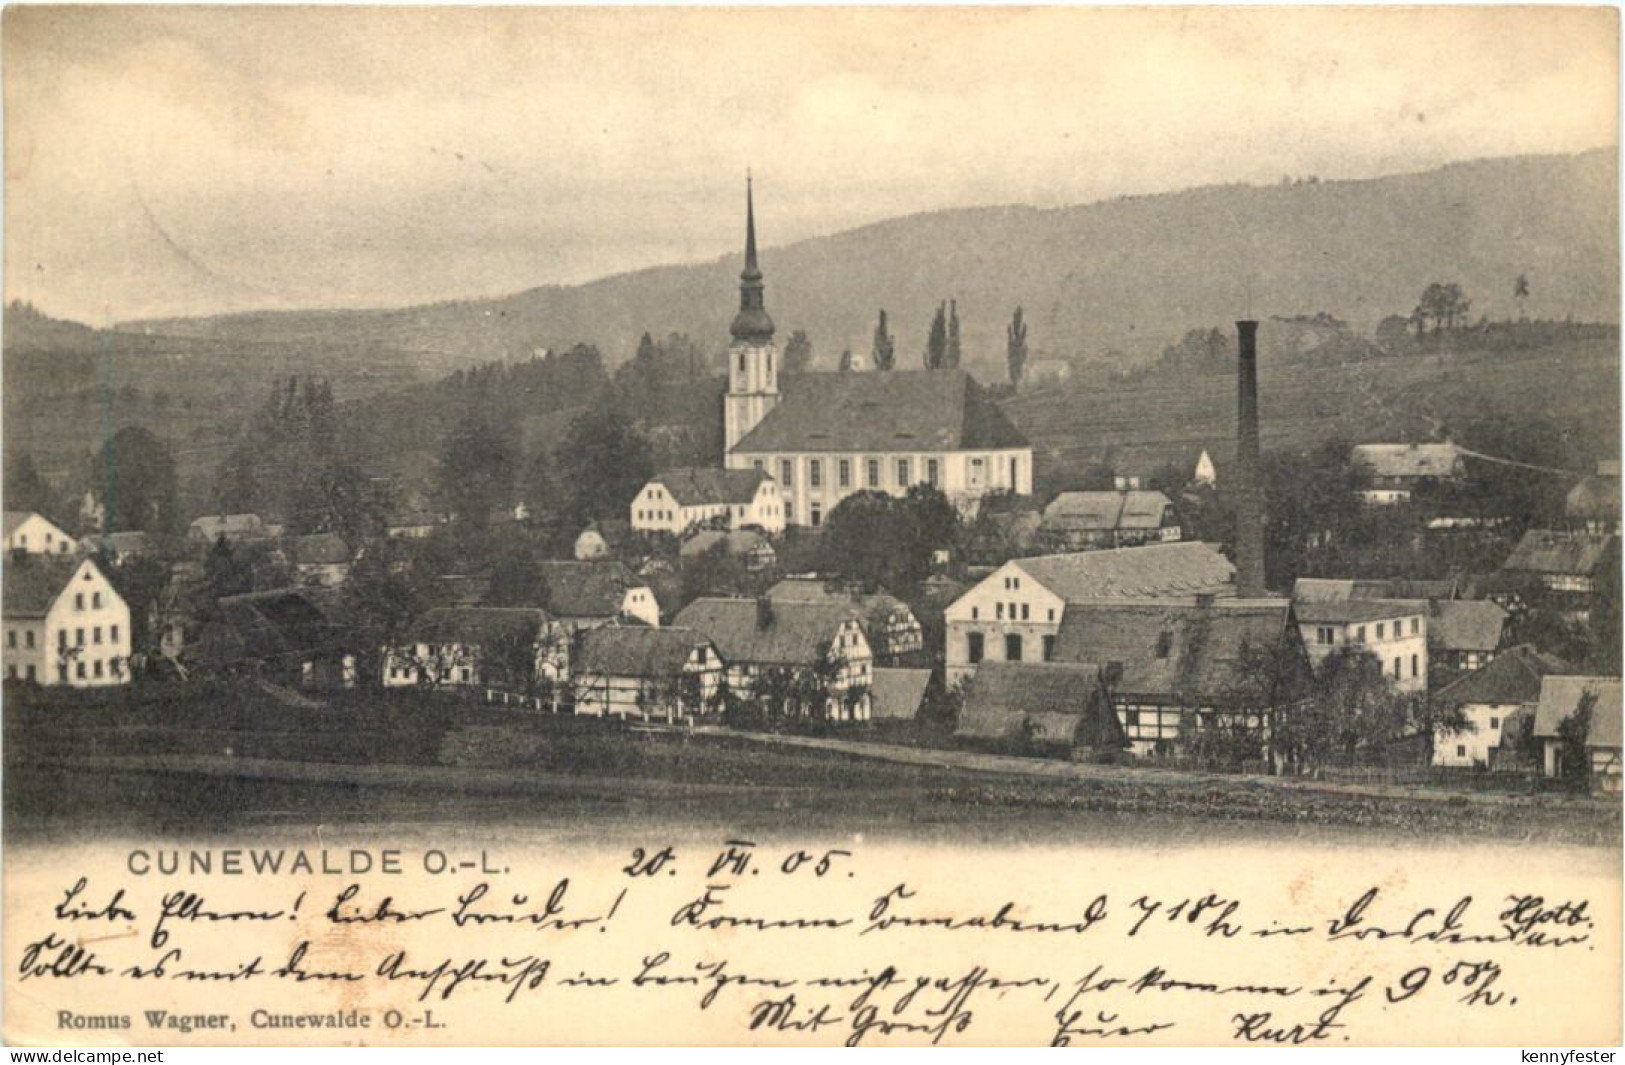 CUNEWALDE O.-L.
20. VII. 05.
Liebe Eltern! Lieber Bruder! Komme Sonnabend 7 18 h in Dresden Hptb. an.
Sollte es mit dem Anschluß in Bautzen nicht passen, so komme ich 9 58 h.
Mit Gruß Euer Kurt.
Romus Wagner, Cunewalde O.-L.
www.delcampe.net
kennyfester